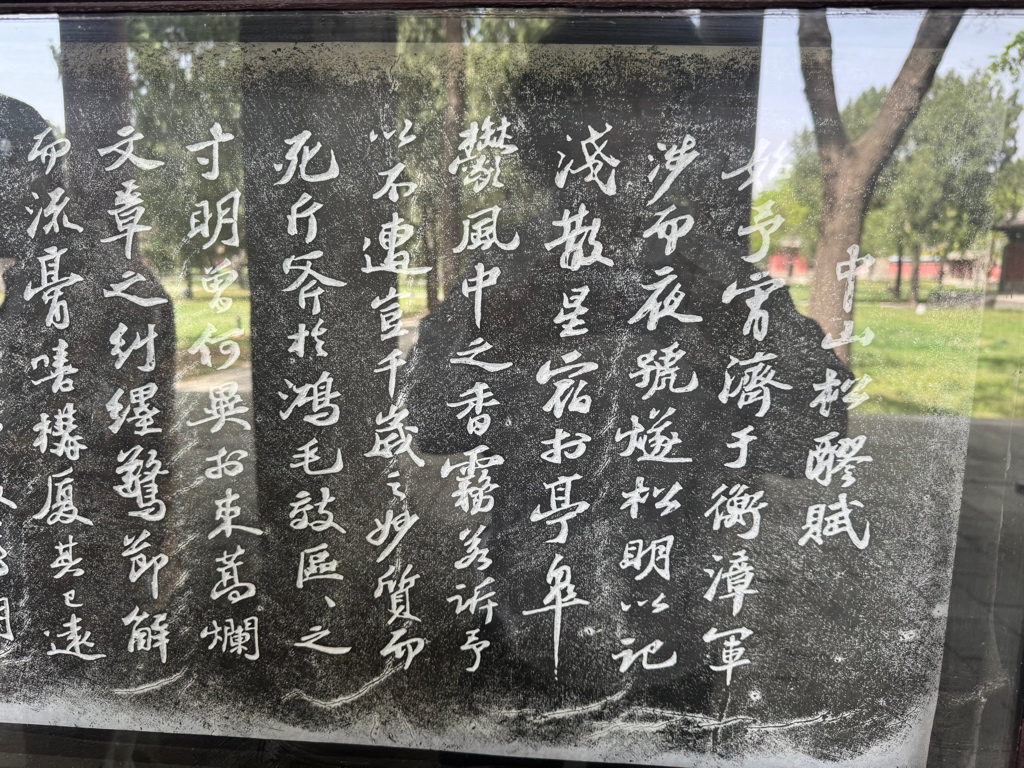 中山松醪賦
始予宵濟于衡漳軍
涉而夜號燧松明以記
淺散星宿於亭皋
鬱風中之香霧若訴予
以不遭豈千歲之妙質而
死斤斧於鴻毛效區々之
寸明曾何異於束蒿爛
文章之糾纒驚節解
而流膏嘻構廈其已遠